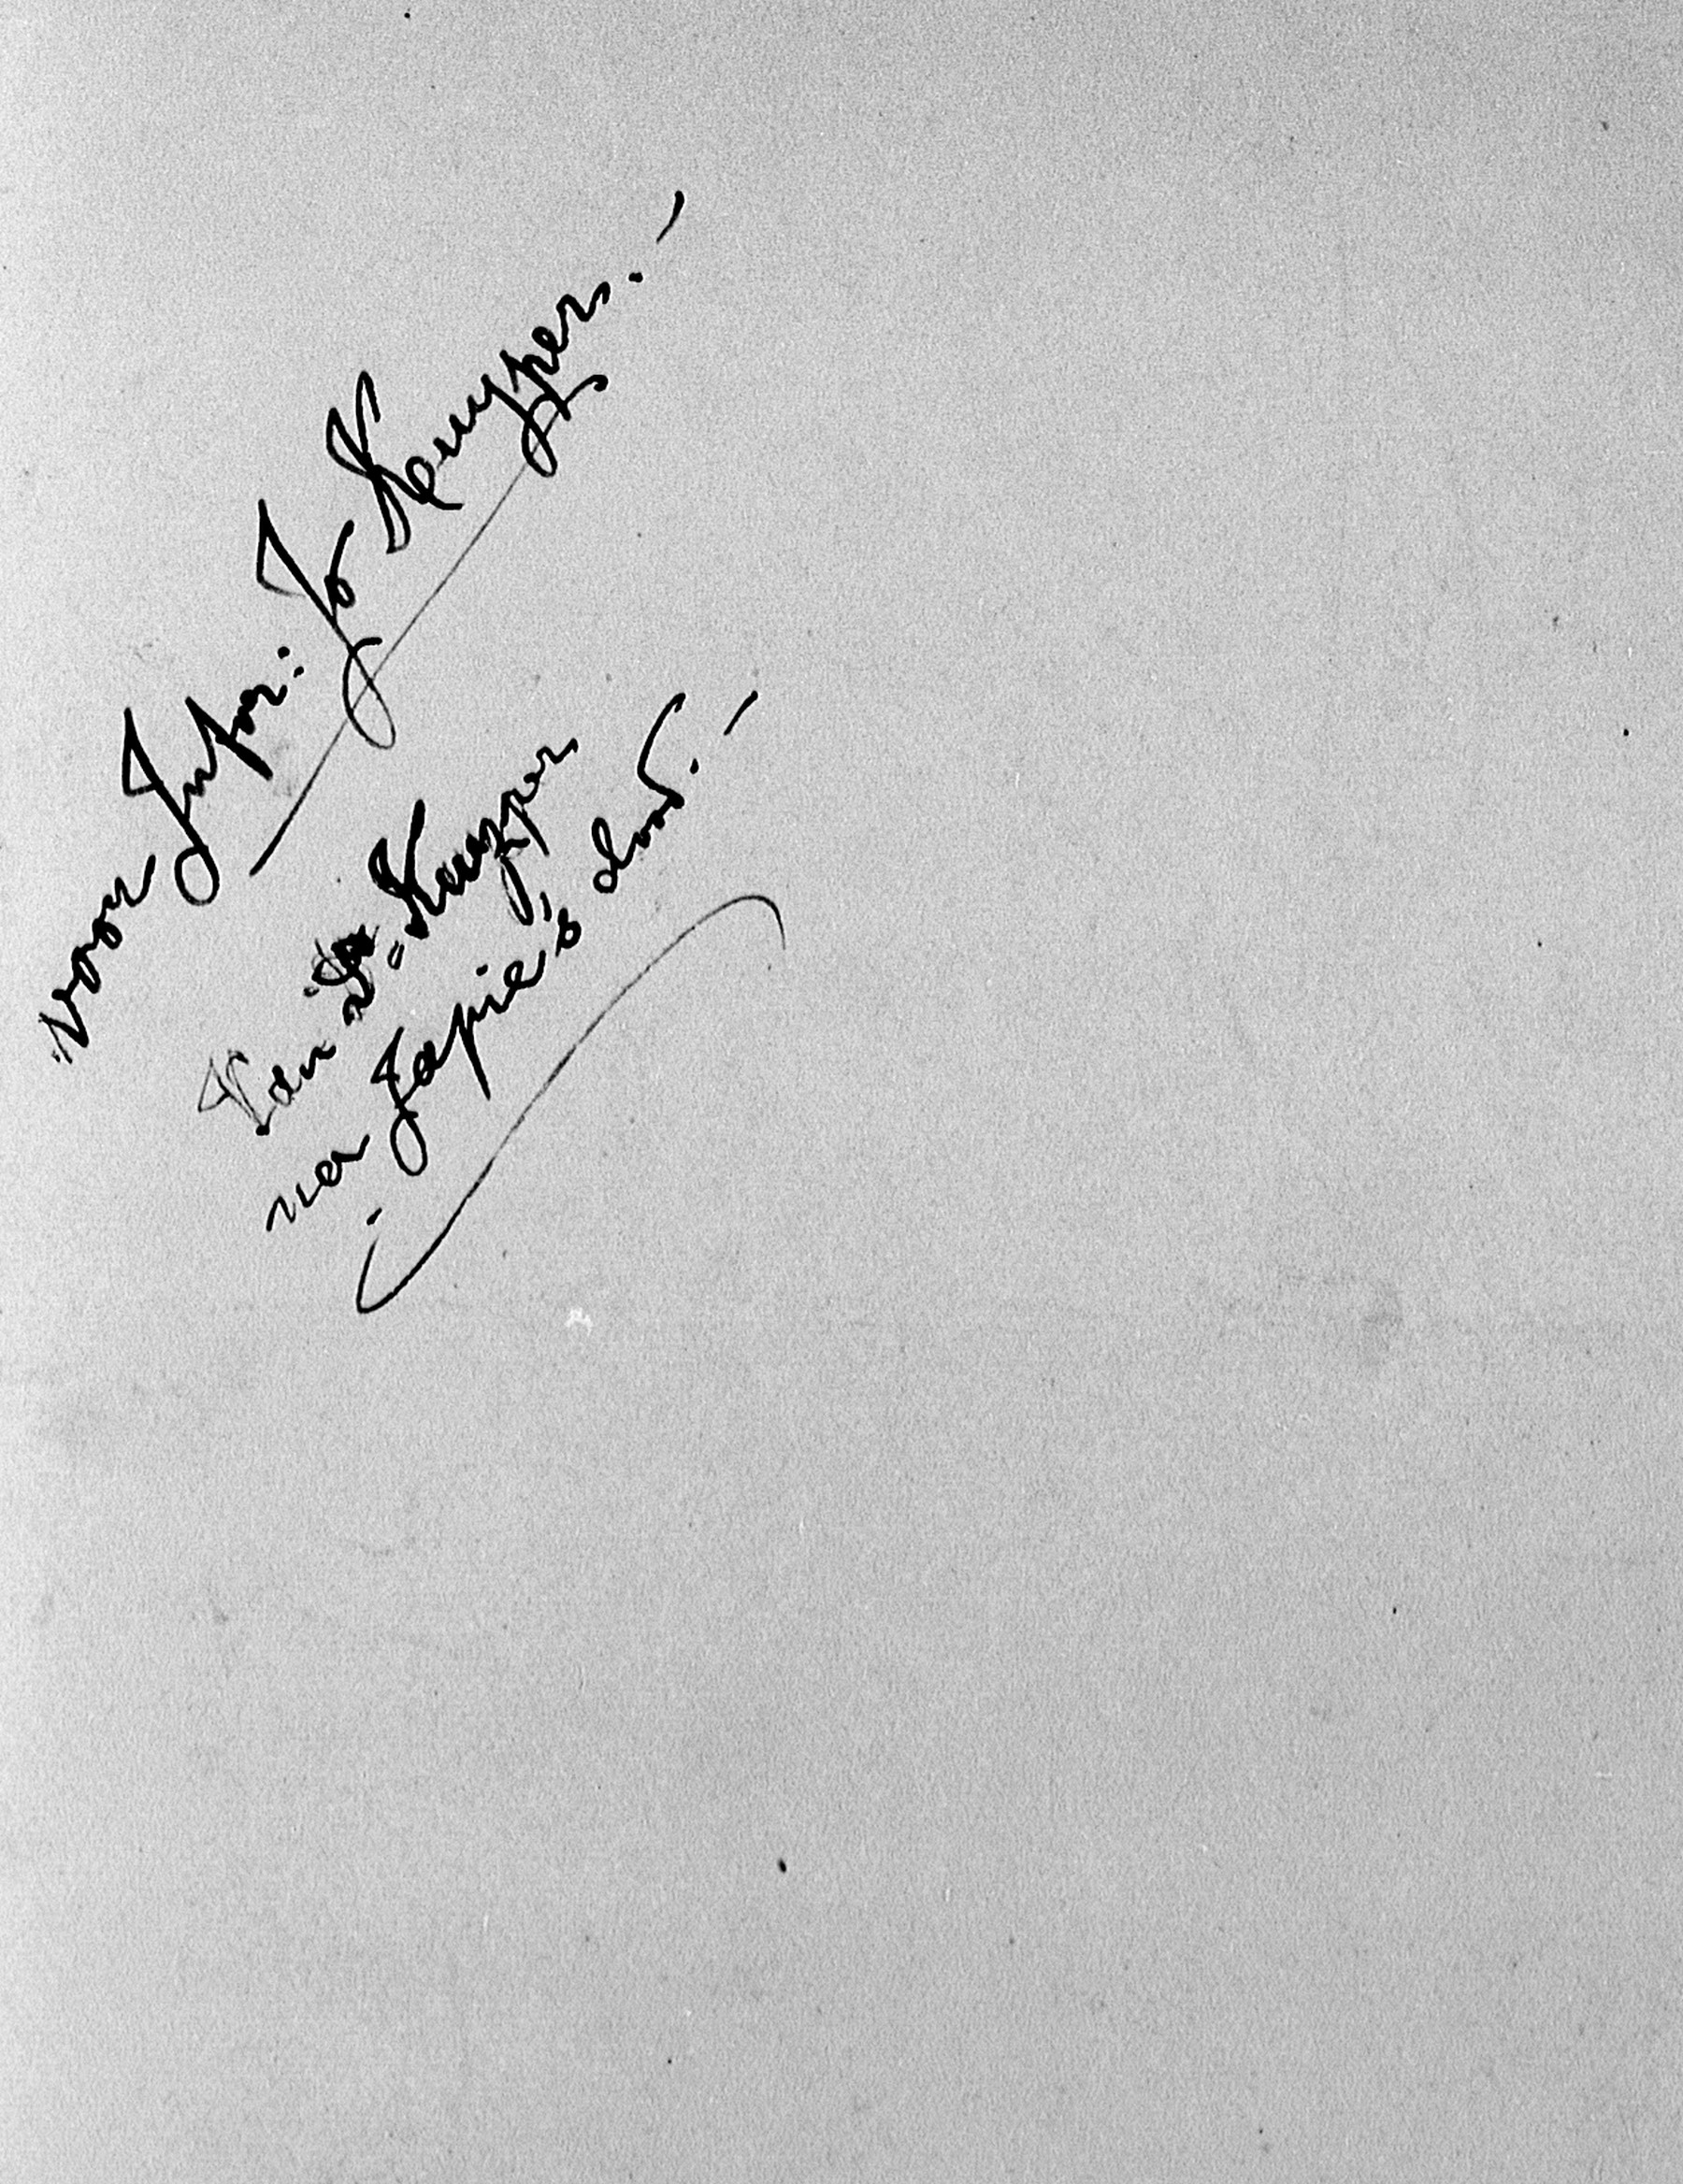 voor Jufvr: Jo Kuyper. -
Van Dr. Kuyper
na Japie's dood. -